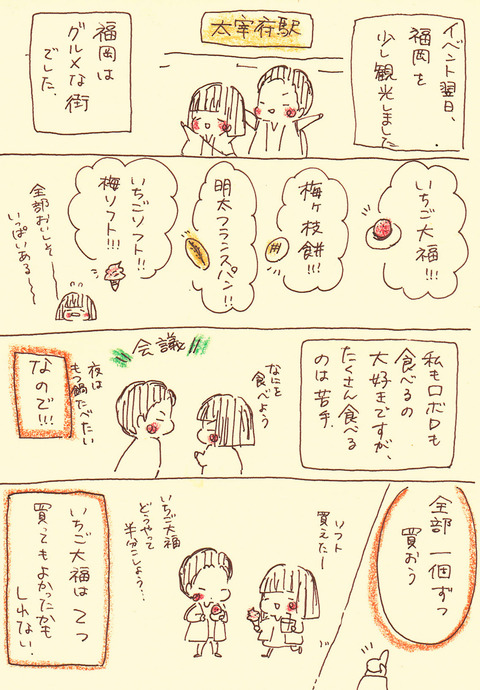 イベント翌日、
福岡を
少し観光しました
太宰府駅
福岡は
グルメな街
でした。
いちご大福!!!
梅ヶ枝
餅!!!
明太フランスパン!!
いちごソフト!!
梅ソフト!!!
全部おいしそ〜
いっぱいある〜〜
私もロボロも
食べるの
大好きですが、
たくさん食べる
のは苦手。
会議
なにを
食べよう
夜は
もつ鍋たべたい
なので!!!
全部一個ずつ
買おう
ソフト
買えたー
いちご大福
どうやって
半分こしよう…
いちご大福は2つ
買ってもよかったかも
しれない。